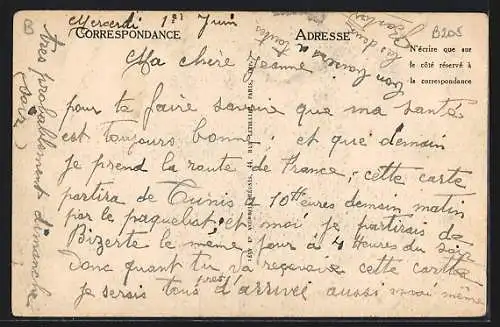 Mercredi 1er Juin
CORRESPONDANCE
ADRESSE
B205
B
N'écrire que sur
le côté réservé à
la correspondance
Ma chère Jeanne
pour te faire savoire que ma santé
est toujours bonne, et que demain
je prend la route de France, cette carte
partira de Tunis a 10 Heures demain matin
par le paquebat, et moi je partirais de
Bizerte le même jour à 4 Heures du soir
donc quant tu va recevoire cette cartte
je serais tous près d'arrivé aussi moi même
très probablement dimanche
soir
Bon baisers
toutes
les deux